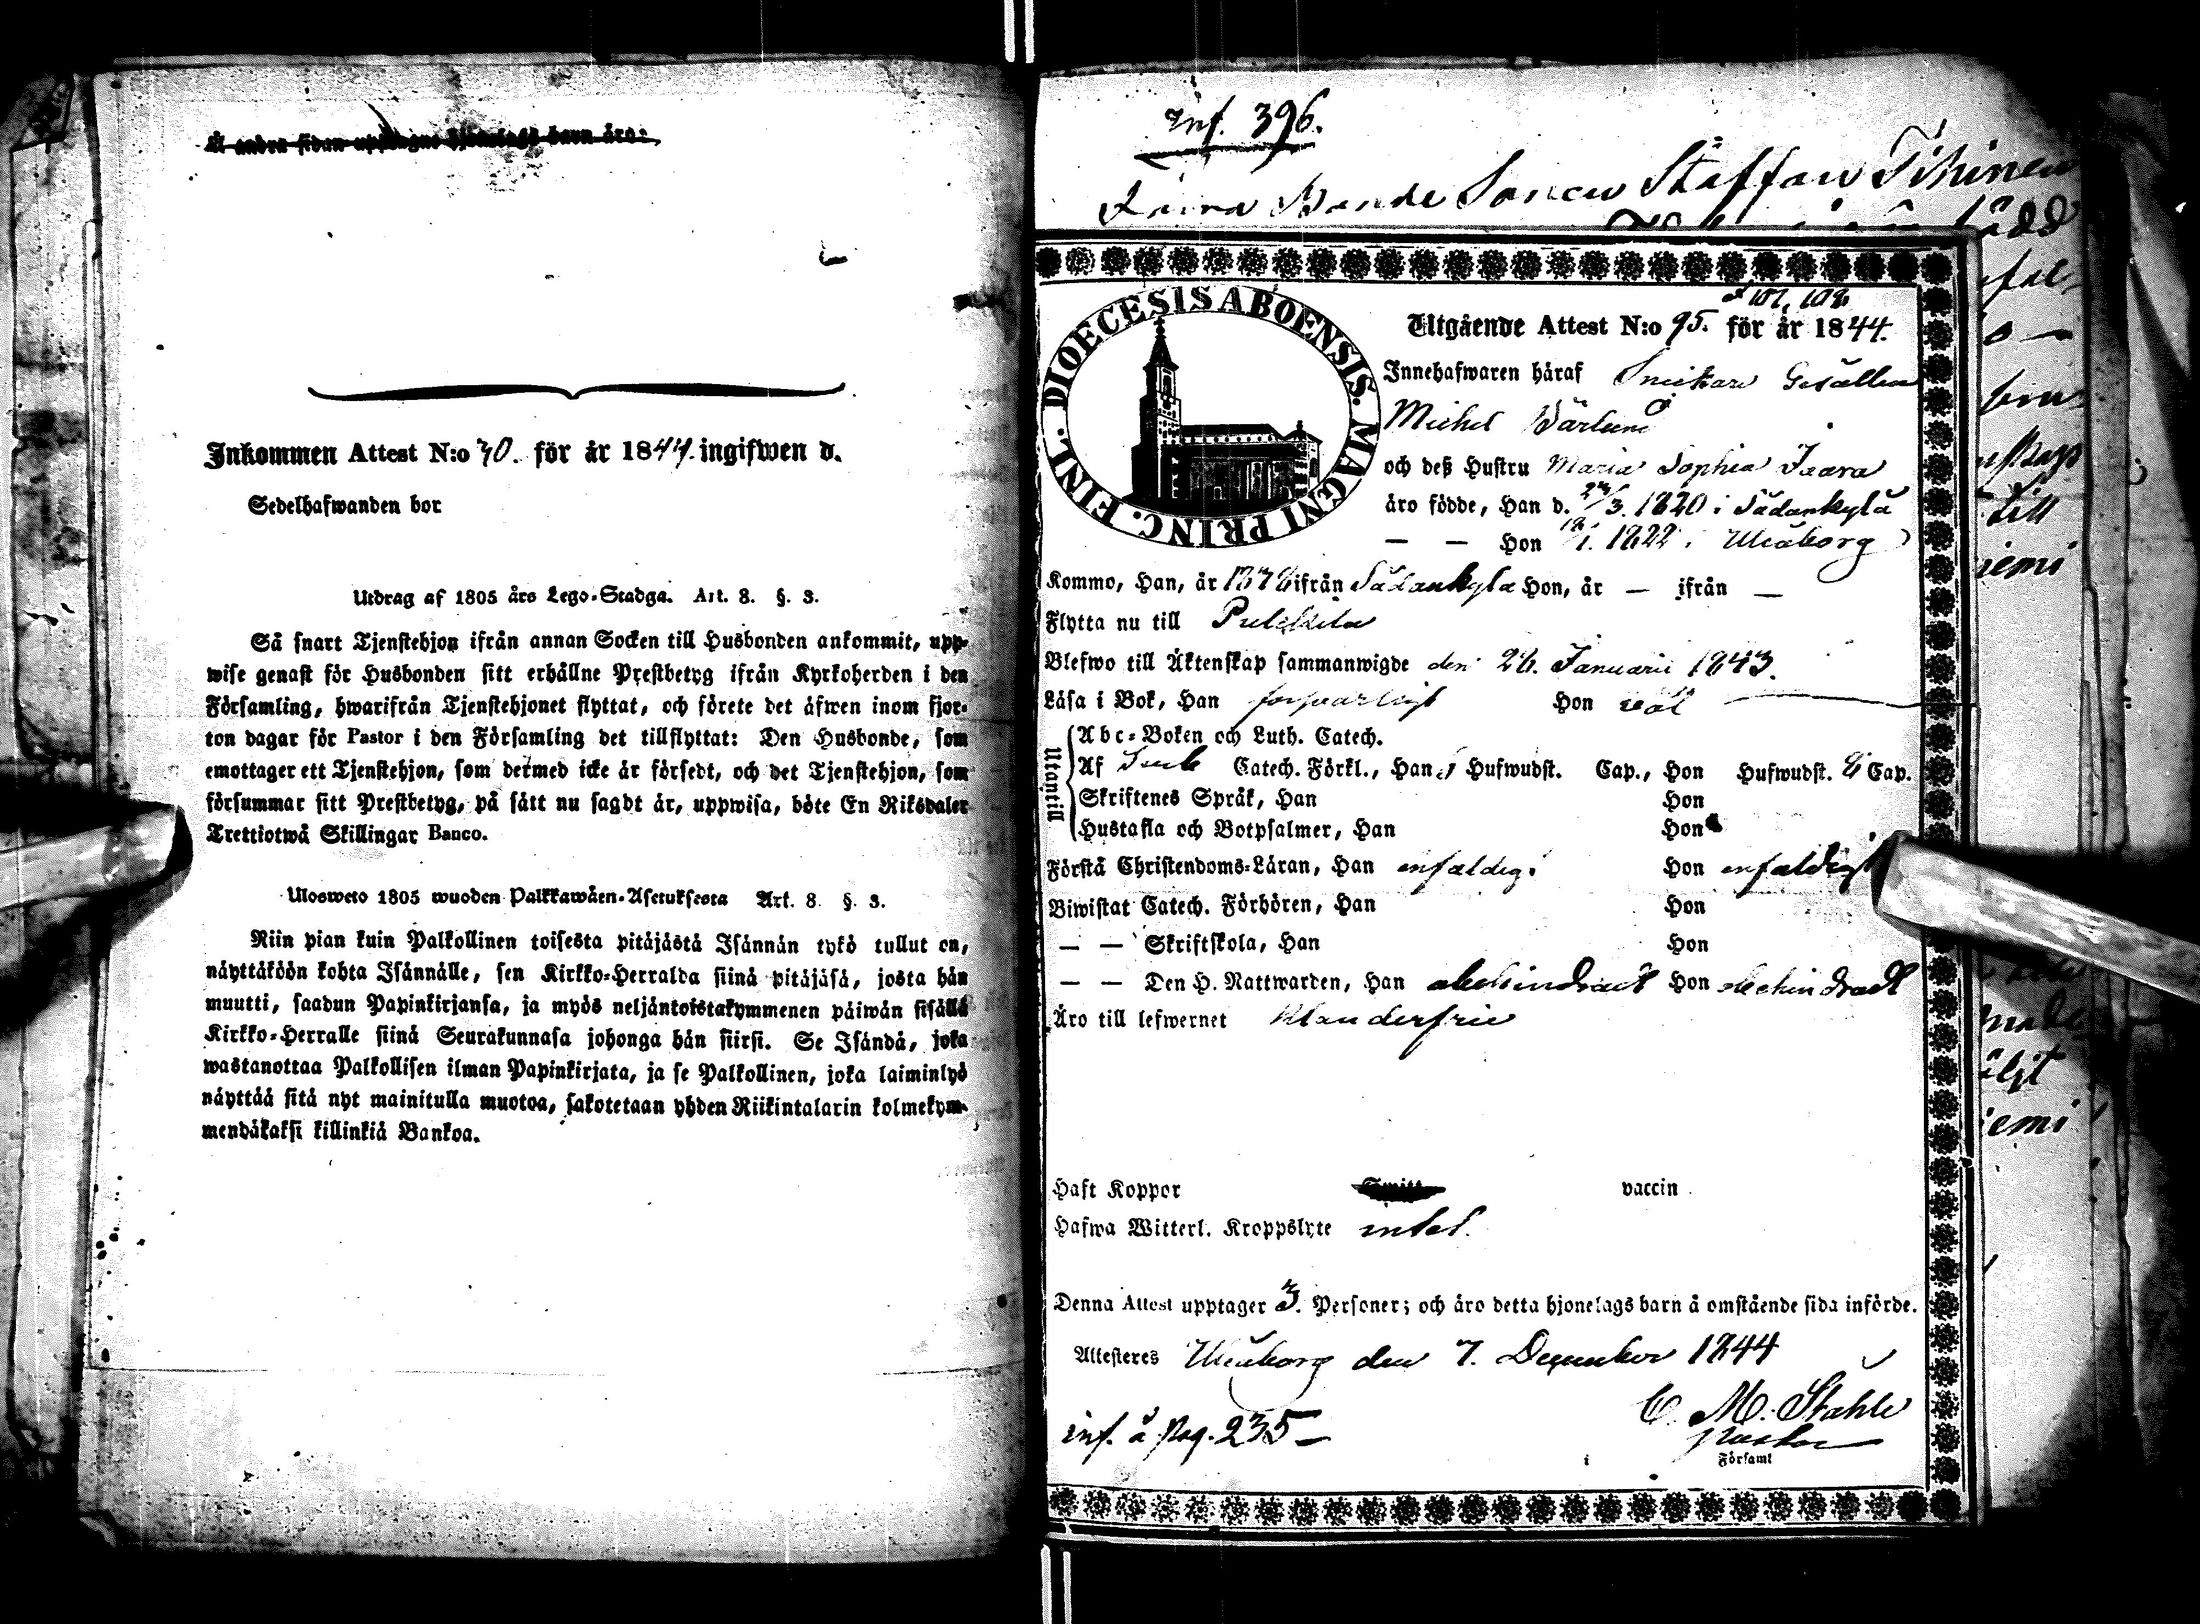 Å andra sidan upptagne hjonelags barn äro:
Inkommen Attest N:o 30. för år 1844. ingifwen d.
Sedelhafwanden bor
Utdrag af 1805 års Lego-Stadga. Art. 8. §. 3.
Så snart Tjenstehjon ifrån annan Socken till Husbonden ankommit, upp-
wise genast för Husbonden sitt erhållne Prestbetyg ifrån Kyrkoherden i den
Församling, hwarifrån Tjenstehjonet flyttat, och förete det äfwen inom fjor-
ton dagar för Pastor i den Församling det tillflyttat: Den Husbonde, som
emottager ett Tjenstehjon, som dermed icke är försedt, och det Tjenstehjon, som
försummar sitt Prestbetyg, på sätt nu sagdt är, uppwisa, böte En Riksdaler
Trettiotwå Skillingar Banco.
Ulosweto 1805 wuoden Palkkawäen-Asetuksesta Art. 8 §. 3.
Niin pian kuin Palkollinen toisesta pitäjästä Isännän tykö tullut on,
näyttäköön kohta Isännälle, sen Kirkko-Herralda siinä pitäjäsä, josta hän
muutti, saadun Papinkirjansa, ja myös neljäntoistakymmenen päiwän sisällä
Kirkko-Herralle siinä Seurakunnasa johonga hän siirsi. Se Isändä, joka
wastanottaa Palkollisen ilman Papinkirjata, ja se Palkollinen, joka laiminlyö
näyttää sitä nyt mainitulla muotoa, sakotetaan yhden Riikintalarin kolmekym-
mendäkaksi killinkiä Bankoa.
Inf. 396.
Staffan Tihinen
DIOECESIS ABOENSIS. MAGNI PRINC. FINL.
Utgående Attest N:o 95. för år 1844.
Innehafwaren häraf Snickare Gesällen
Michel Wärlund
och deß Hustru Maria Sophia Jaara
äro födde, Han d. 1820 i Sådankylä
— — Hon 1822 i Uleåborg
Kommo, Han, år ifrån Sådankylä Hon, år — ifrån —
Flytta nu till Pulkkila
Blefwo till Äktenskap sammanwigde den 26. Januarii 1843.
Läsa i Bok, Han försvarligt Hon wäl
Utantill
Abc-Boken och Luth. Catech.
Af Catech. Förkl., Han Hufwudst. Cap., Hon Hufwudst. Cap.
Skriftenes Språk, Han Hon
Hustafla och Botpsalmer, Han Hon
Förstå Christendoms-Läran, Han enfaldigt Hon enfaldigt
Biwistat Catech. Förhören, Han Hon
— — Skriftskola, Han Hon
— — Den H. Nattwarden, Han obehindradt Hon obehindradt
Äro till lefwernet klanderfrie
Haft Koppor vaccin
Hafwa Witterl. Kroppslyte intet.
Denna Attest upptager 3. Personer; och äro detta hjonelags barn å omstående sida införde.
Attesteres Uleåborg den 7. December 1844
C. M. Ståhle
Pastor
inf. å pag. 235 —
i Församl